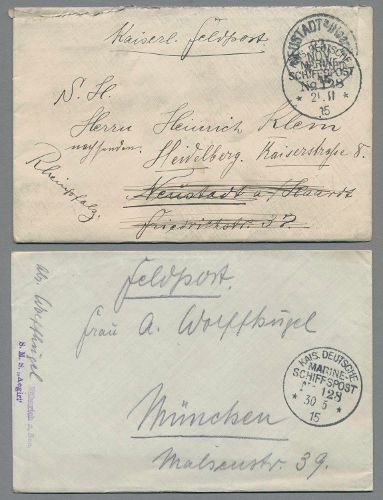 Kaiserl. Feldpost.
KAIS. DEUTSCHE
MARINE-
SCHIFFSPOST
No 128
* 21. 11 *
15
S. H.
Herrn Heinrich Klem
nachsenden. Heidelberg. Kaiserstraße 8.
Rheinpfalz.
Neustadt a/Haardt
Friedrichstr. 37.
Feldpost.
Frau A. Wolffhügel
München
Malsenstr. 39.
KAIS. DEUTSCHE
MARINE-
SCHIFFSPOST
No 128
* 30. 5 *
15
Abs. Wolffhügel
S. M. S. „Aegir"